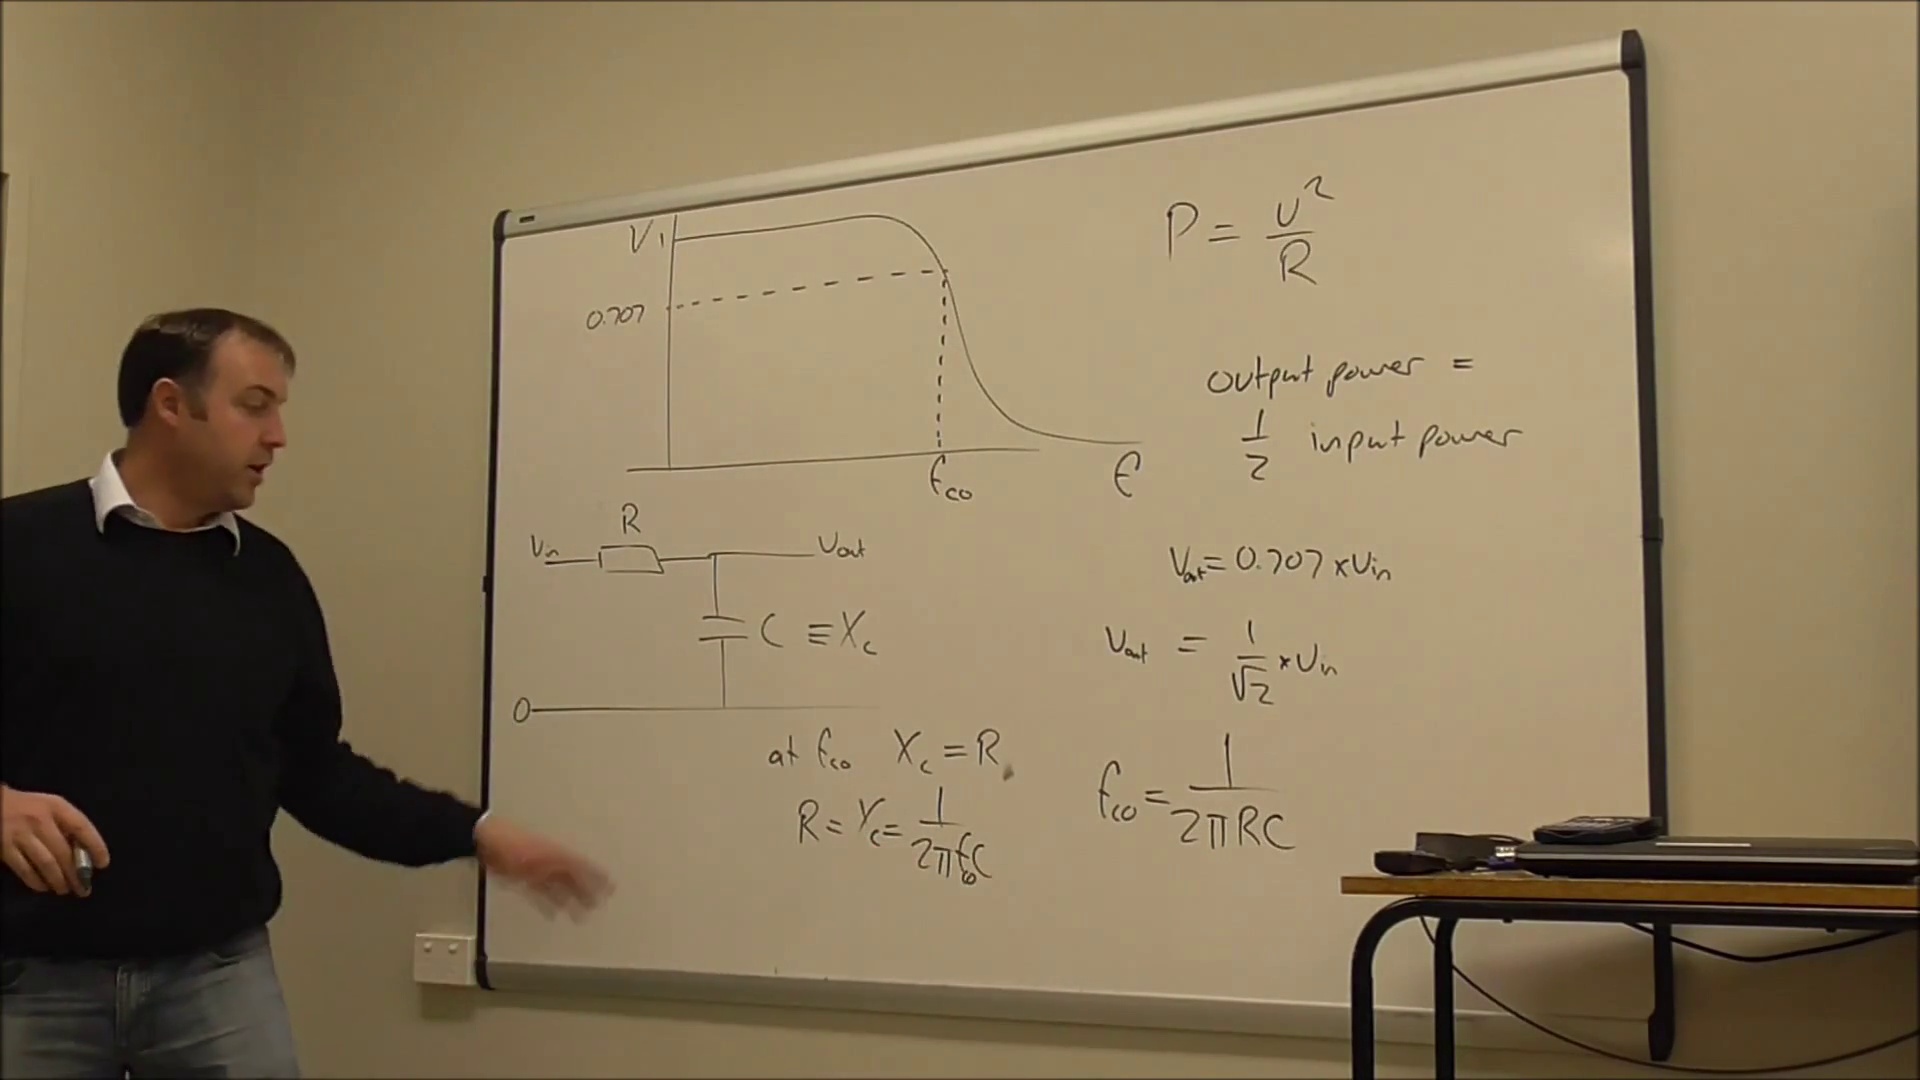 V 1
0.707
fco
f
R
Vin
Vout
C ≡ Xc
0
at fco Xc = R
R = Xc = 1/2πfcoC
P = V²/R
output power =
1/2 input power
Vout = 0.707 x Vin
Vout = 1/√2 x Vin
fco = 1/2πRC